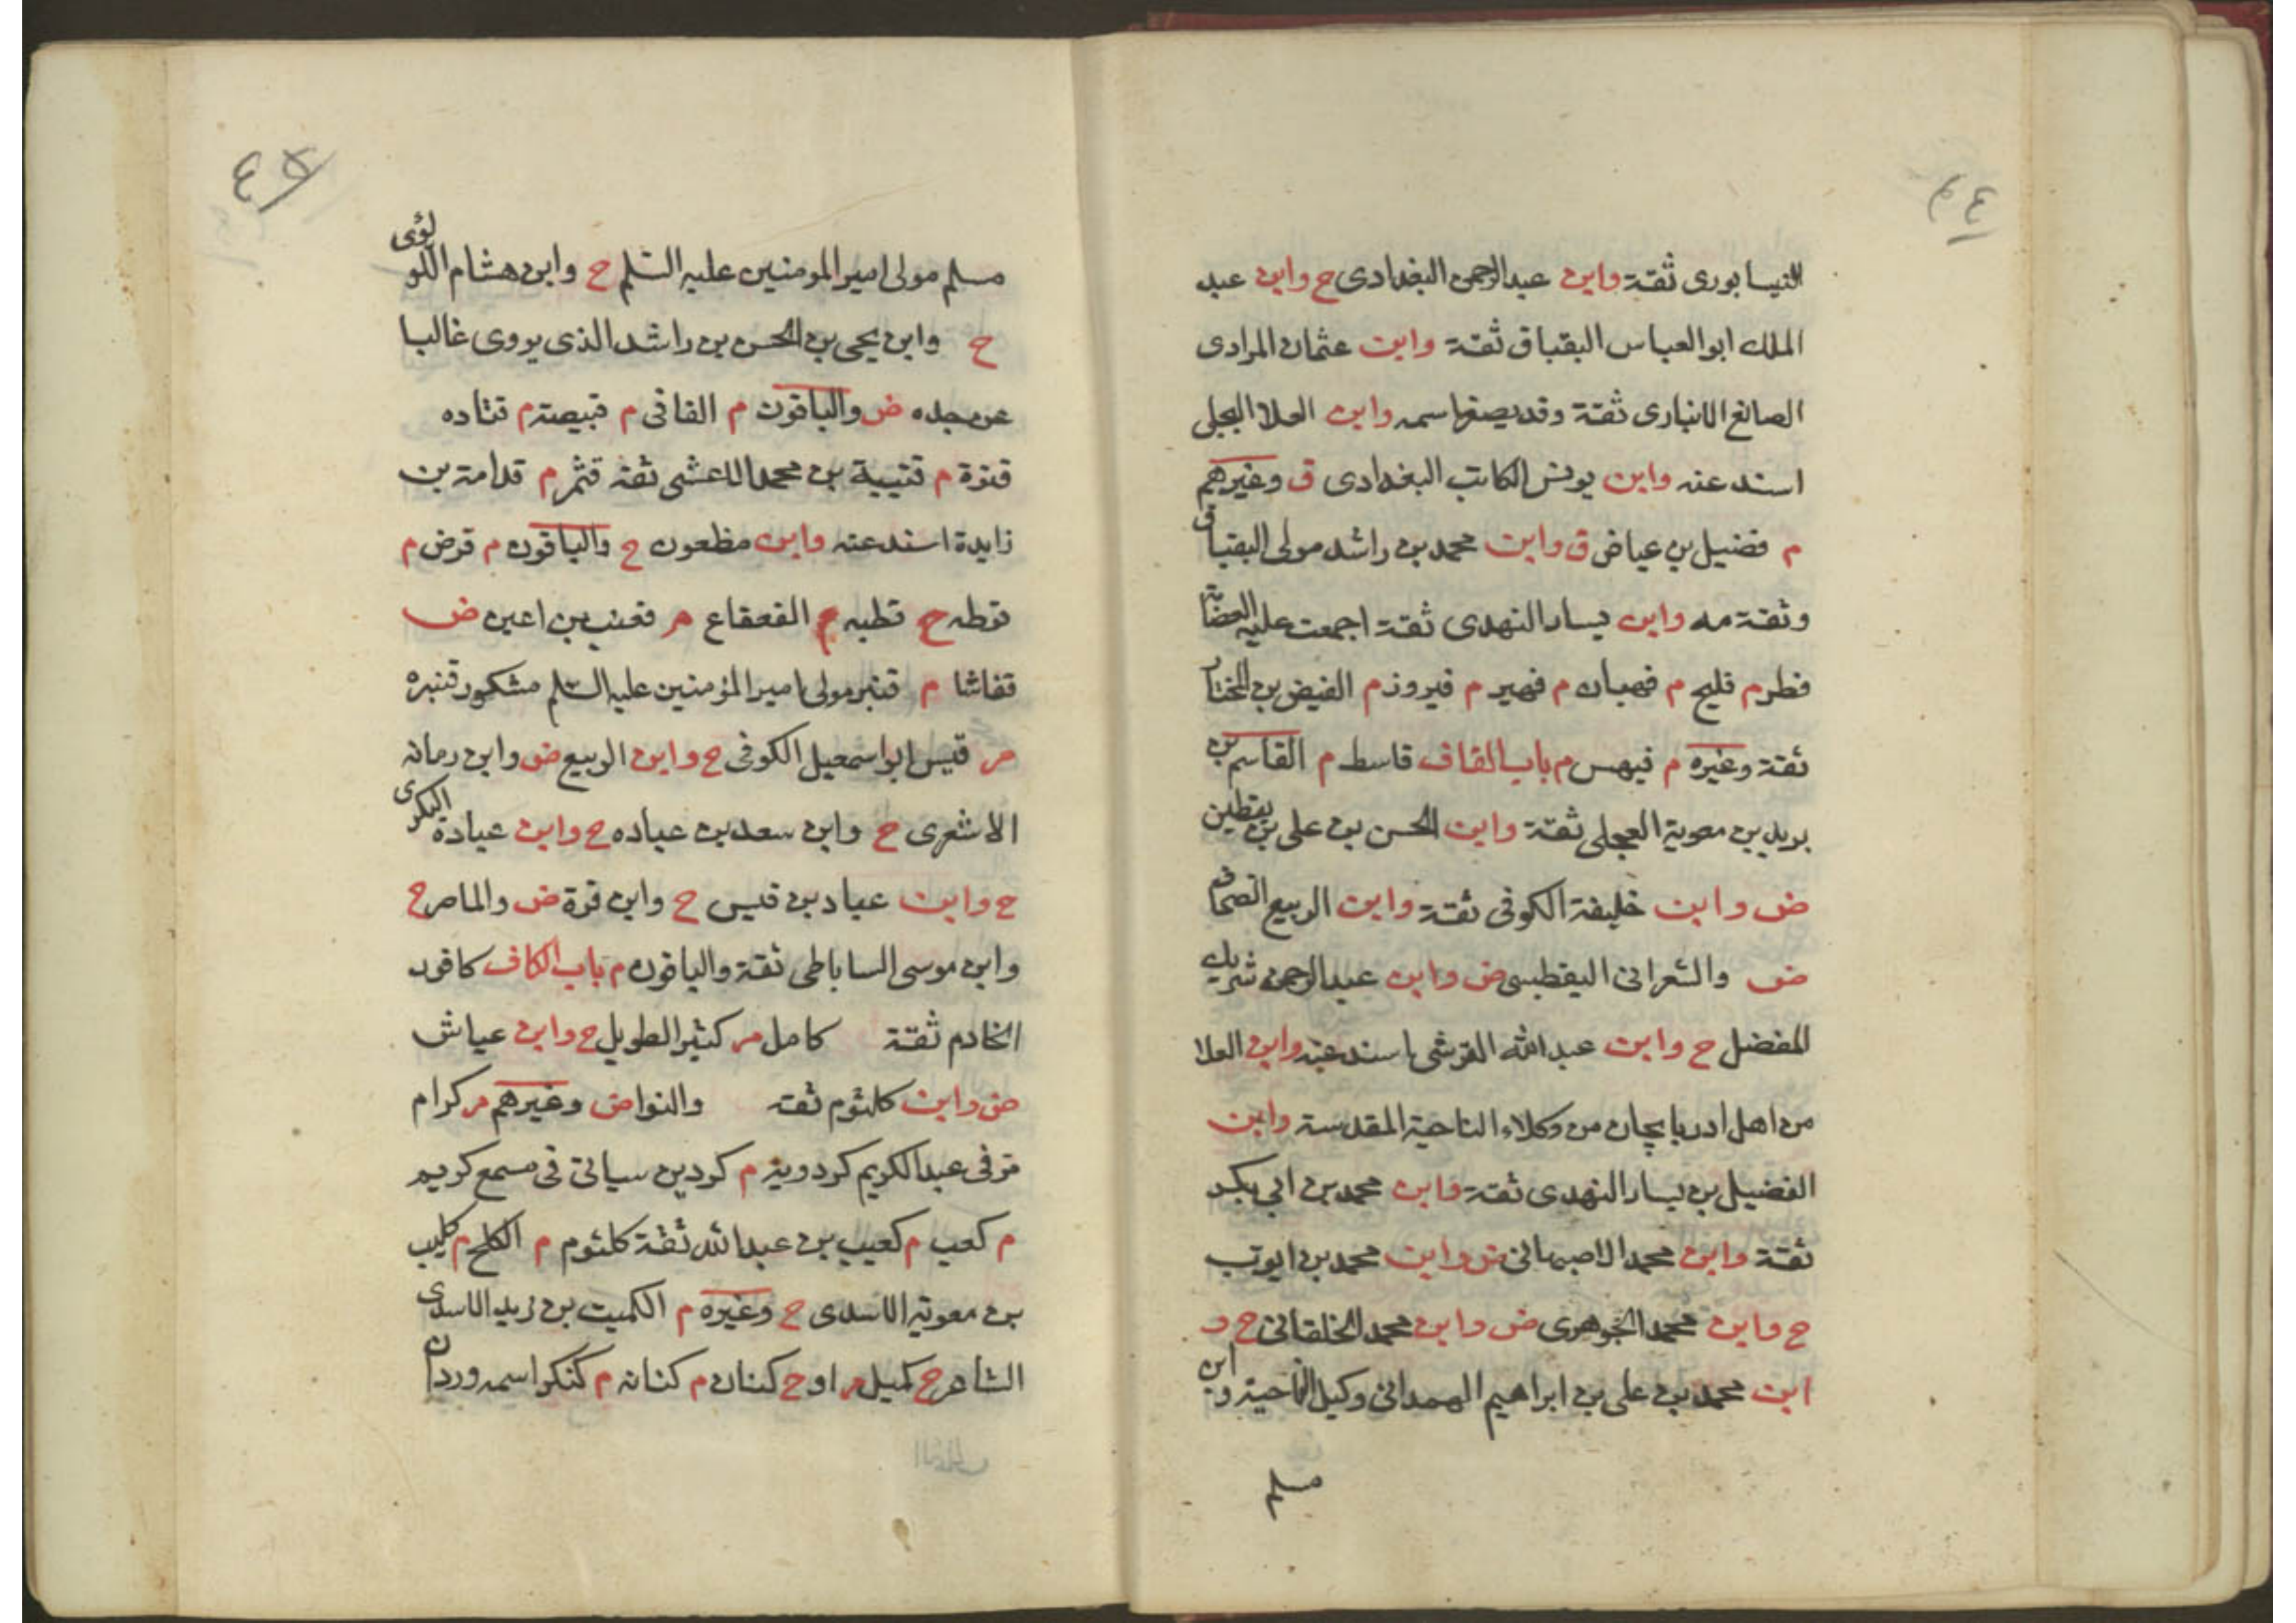 النيسابوري ثقة وابن عبدالرحمن البغدادي ح وابن عبد
الملك ابوالعباس البقباق ثقة وابن عثمان المرادي
الصائغ الانباري ثقة وقد يصغر اسمه وابن العلا البجلي
اسند عنه وابن يونس الكاتب البغدادي ق وغيرهم
م فضيل بن عياض ق وابن محمد بن راشد مولى البقباق
وثقة مه وابن يسار النهدي ثقة اجمعت عليه العصابة
فطر م فليح م فهبان م فهير م فيروز م الفيض بن المختار
ثقة وغيره م فيهس م باب القاف قاسط م القاسم بن
بريد بن معوية العجلي ثقة وابن الحسن بن علي بن يقطين
ض وابن خليفة الكوفي ثقة وابن الربيع الصحاف
ض والشعراني اليقطيني ض وابن عبدالرحمن شريك
المفضل ح وابن عبدالله القرشي اسند عنه وابن العلا
من اهل ادربايجان من وكلاء الناحية المقدسة وابن
الفضيل بن يسار النهدي ثقة وابن محمد بن ابي بكر
ثقة وابن محمد الاصبهاني ض وابن محمد بن ايوب
ح وابن محمد الجوهري ض وابن محمد الخلقاني ح و
ابن محمد بن علي بن ابراهيم الهمداني وكيل الناحية و ابن
مسلم
مسلم مولى اميرالمومنين عليه السلم ح وابن هشام اللو لؤى
ح وابن يحيى بن الحسن بن راشد الذي يروى غالبا
عن جده ض والباقون م القاني م قبيصة م قتاده
قنوة م قتيبة بن محمد الاعشى ثقة قثم م قدامة بن
زايدة اسند عنه وابن مظعون ح والباقون م قرض م
قرطه ح قطبه ح القعقاع م قعنب بن اعين ض
قفاشا م قنبر مولى اميرالمؤمنين عليه السلم مشكور قنبره
م قيس ابو اسمعيل الكوفي ح وابن الربيع ض وابن رمانه
الاشعري ح وابن سعد بن عباده ح وابن عبادة البكرى
ح وابن عباد بن قيس ح وابن قرة ض والماصر ح
وابن موسى الساباطي ثقة والباقون م باب الكاف كافور
الخادم ثقة كامل م كثير الطويل ح وابن عياش
ض وابن كلثوم ثقة والنوا ض وغيرهم م كرام
مر في عبدالكريم كردويه م كردين سياتي في مسمع كريم
م كعب م كعيب بن عبدالله ثقة كلثوم م الكلح م كليب
بن معوية الاسدي ح وغيره م الكميت بن زيد الاسدى
الشاعر ح كميل م او ح كنان م كنانه م كنكر اسمه وردان